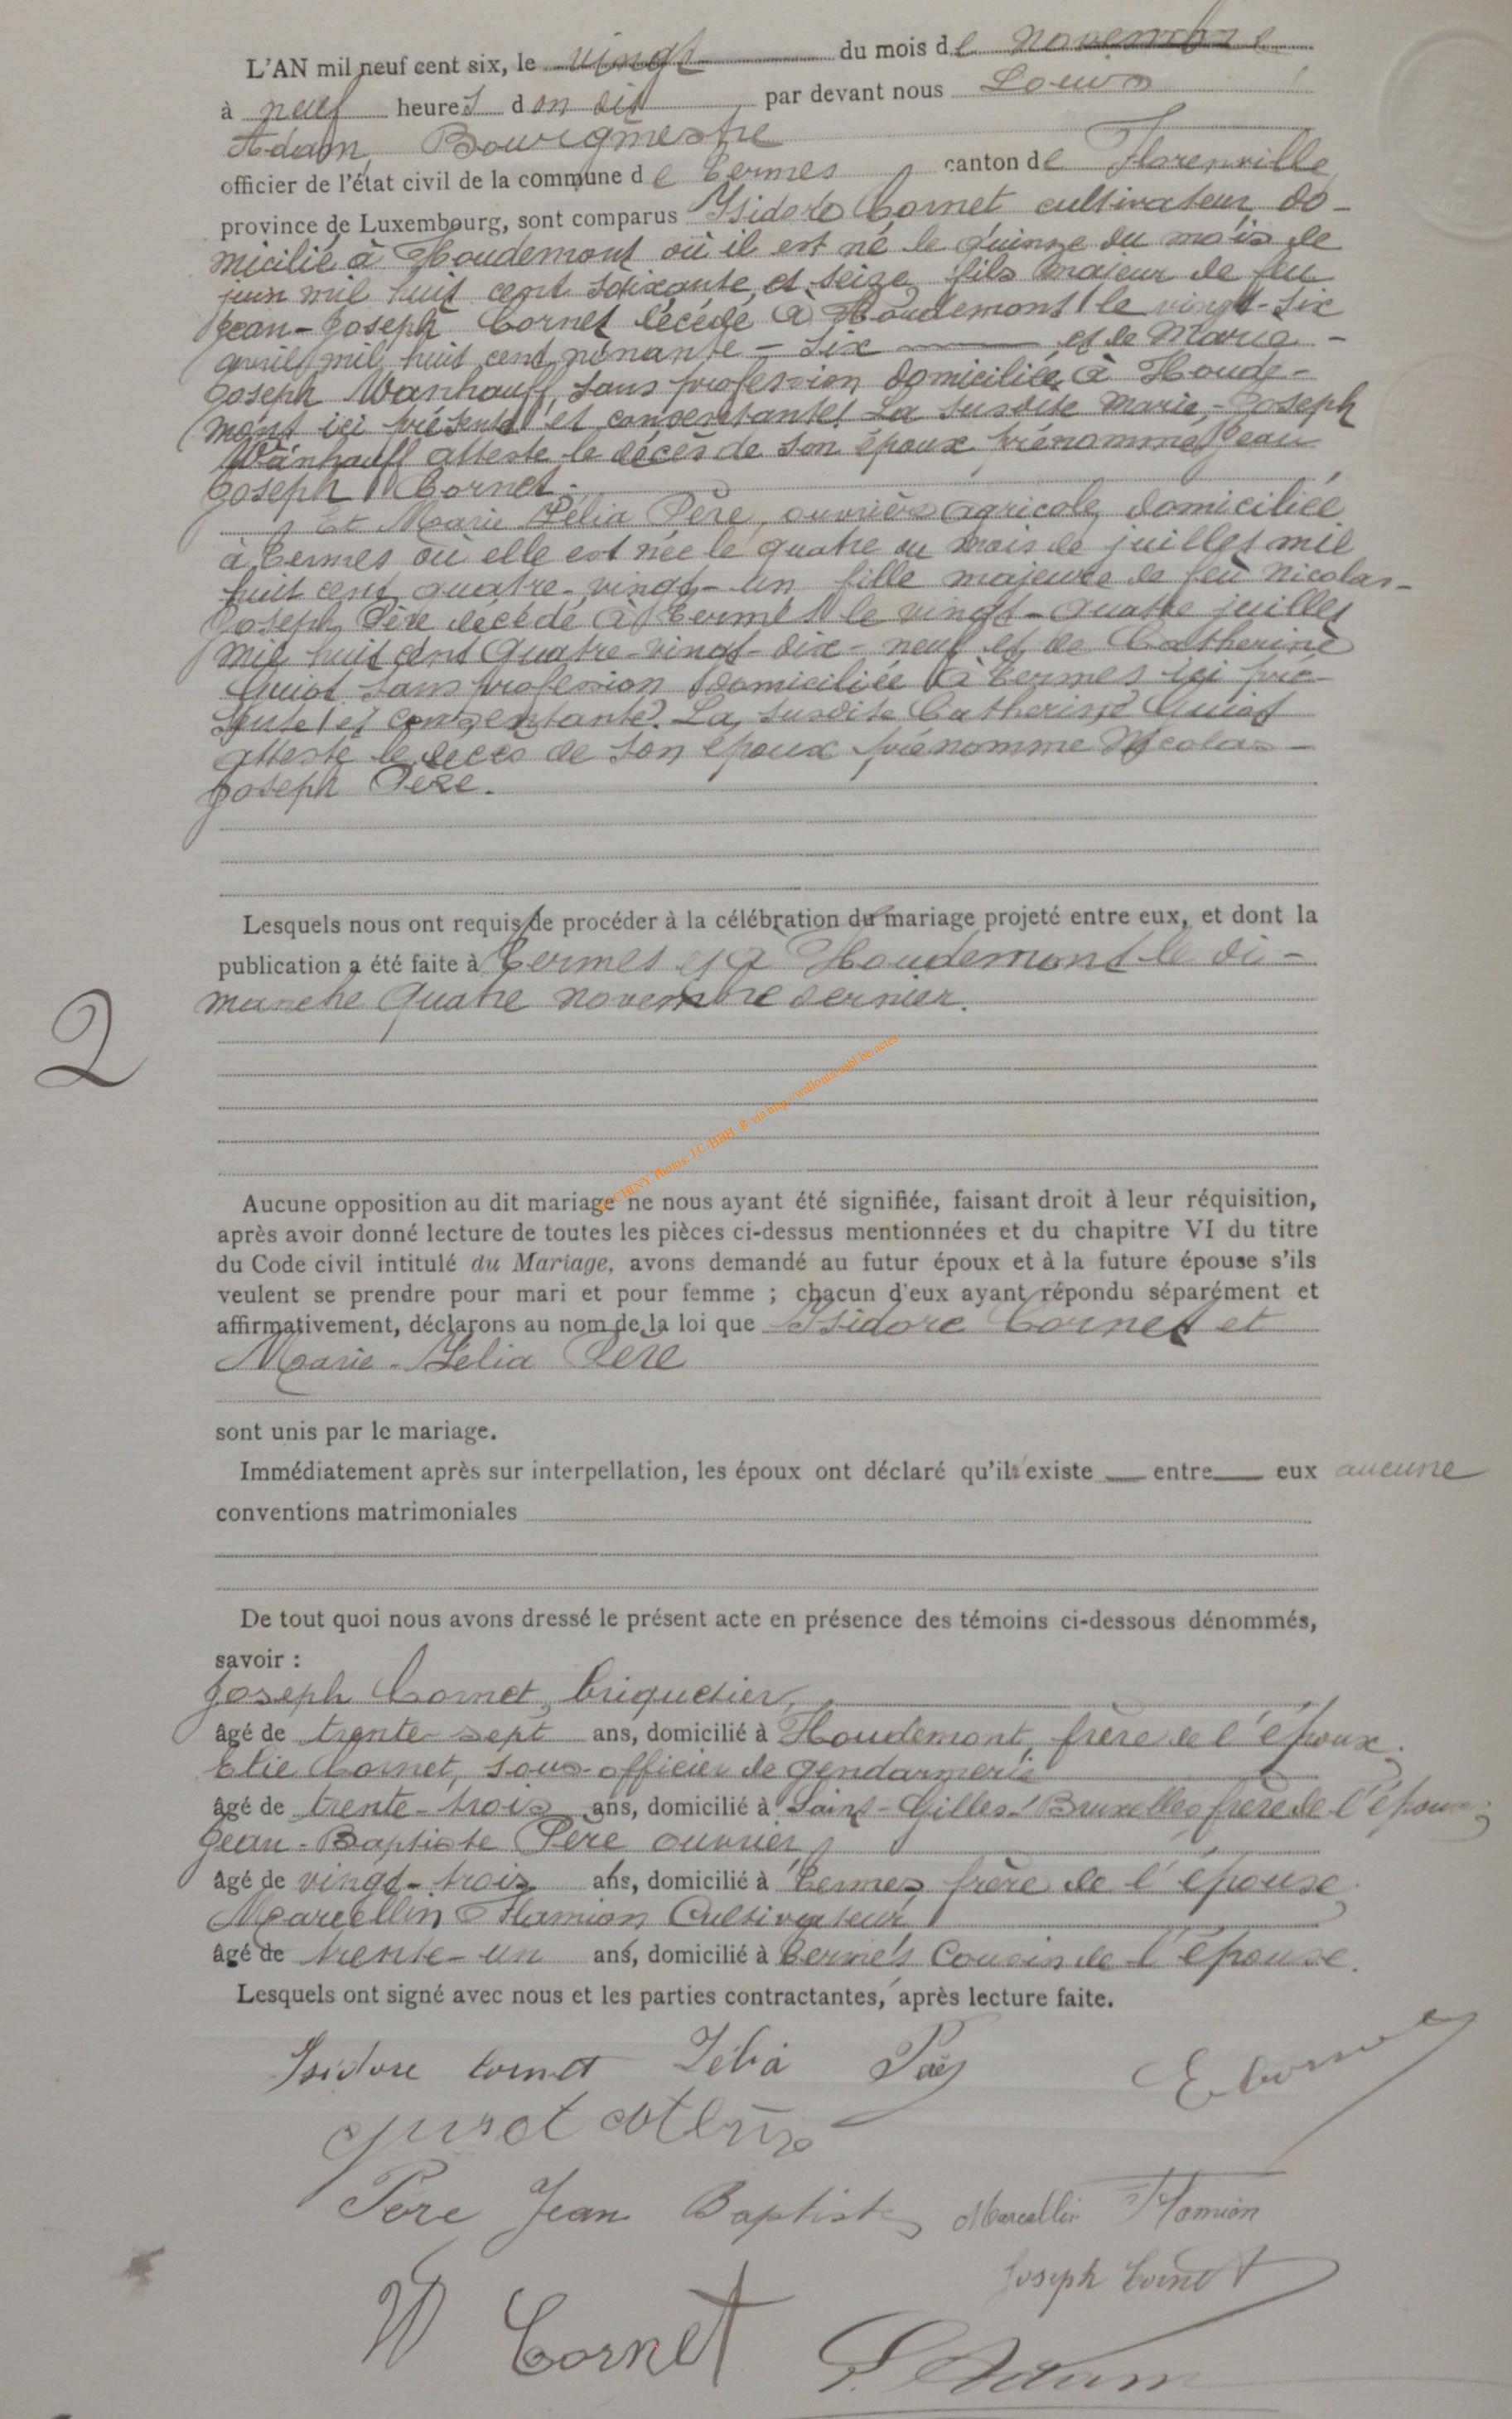 L'AN mil neuf cent six, le vingt du mois de novembre
à neuf heures d on dit par devant nous Louis
Adam, Bourgmestre
officier de l'état civil de la commune de Termes canton de Florenville
province de Luxembourg, sont comparus Isidore Cornet cultivateur do-
micilié à Houdemont où il est né le quinze du mois de
juin mil huit cent soixante et seize fils majeur de feu
Jean-Joseph Cornet décédé à Houdemont le vingt-six
avril mil huit cent nonante-six et de Marie-
Joseph Wanhauff, sans profession domiciliée à Houde-
mont ici présente et consentante. La susdite Marie-Joseph
Wanhauff atteste le décès de son époux prénommé Jean
Joseph Cornet.
Et Marie Zélia Père, ouvrière agricole, domiciliée
à Termes où elle est née le quatre du mois de juillet mil
huit cent quatre-vingt-un fille majeure de feu Nicolas-
Joseph Père décédé à Termes le vingt-quatre juillet
mil huit cent quatre-vingt-dix-neuf et de Catherine
Guiot sans profession domiciliée à Termes ici pré-
sente et consentante. La susdite Catherine Guiot
atteste le décès de son époux prénommé Nicolas-
Joseph Père.
Lesquels nous ont requis de procéder à la célébration du mariage projeté entre eux, et dont la
publication a été faite à Termes et à Houdemont le di-
manche quatre novembre dernier.
2
Photos J.C. via http://wallonia-asbl.be/actes
Aucune opposition au dit mariage ne nous ayant été signifiée, faisant droit à leur réquisition,
après avoir donné lecture de toutes les pièces ci-dessus mentionnées et du chapitre VI du titre
du Code civil intitulé du Mariage, avons demandé au futur époux et à la future épouse s'ils
veulent se prendre pour mari et pour femme ; chacun d'eux ayant répondu séparément et
affirmativement, déclarons au nom de la loi que Isidore Cornet et
Marie-Zélia Père
sont unis par le mariage.
Immédiatement après sur interpellation, les époux ont déclaré qu'il existe entre eux aucune
conventions matrimoniales
De tout quoi nous avons dressé le présent acte en présence des témoins ci-dessous dénommés,
savoir :
Joseph Cornet, briquetier,
âgé de trente-sept ans, domicilié à Houdemont, frère de l'époux;
Elie Cornet, sous-officier de gendarmerie
âgé de trente-trois ans, domicilié à Saint-Gilles-Bruxelles frère de l'époux;
Jean-Baptiste Père ouvrier,
âgé de vingt-trois ans, domicilié à Termes frère de l'épouse,
Marcellin Hamion Cultivateur,
âgé de trente-un ans, domicilié à Termes Cousin de l'épouse.
Lesquels ont signé avec nous et les parties contractantes, après lecture faite.
Isidore Cornet Zélia Père E Cornet
Père Jean Baptiste Marcellin Hamion
Joseph Cornet
Cornet L. Adam